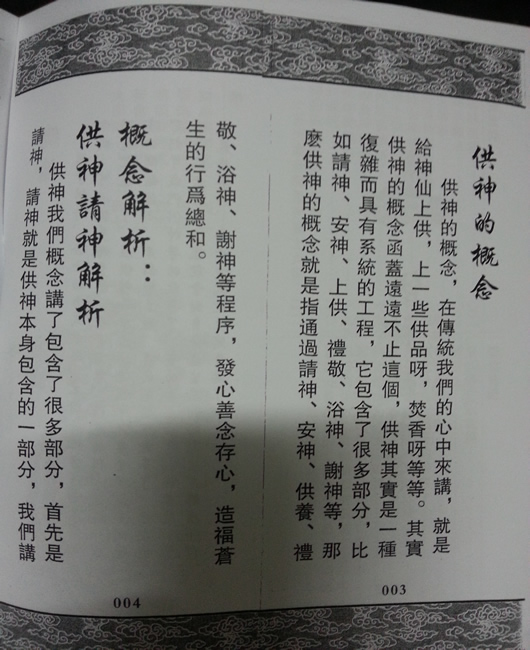 供神的概念
供神的概念，在傳統我們的心中來講，就是
給神仙上供，上一些供品呀，焚香呀等等。其實
供神的概念函蓋遠遠不止這個，供神其實是一種
復雜而具有系統的工程，它包含了很多部分，比
如請神、安神、上供、禮敬、浴神、謝神等，那
麽供神的概念就是指通過請神、安神、供養、禮
003
敬、浴神、謝神等程序，發心善念存心，造福蒼
生的行爲總和。
概念解析：
供神請神解析
供神我們概念講了包含了很多部分，首先是
請神，請神就是供神本身包含的一部分，我們講
004